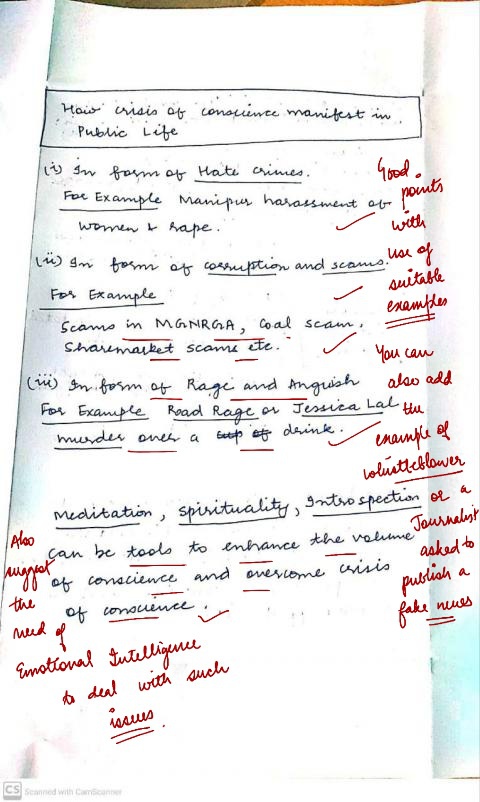 How crisis of conscience manifest in
Public Life
(i) In form of Hate crimes.
For Example Manipur harassment of
women & rape.
(ii) In form of corruption and scams.
For Example
Scams in MGNRGA, Coal scam,
Sharemarket scams etc.
(iii) In form of Rage and Anguish
For Example Road Rage or Jessica Lal
murder over a cup of drink.
Meditation, Spirituality, Introspection
can be tools to enhance the volume
of conscience and overcome crisis
of conscience.
Good
points
with
use of
suitable
examples
You can
also add
the
example of
whistleblower
or a
Journalist
asked to
publish a
fake news
Also
suggest
the
need of
Emotional Intelligence
to deal with such
issues.
CS Scanned with CamScanner